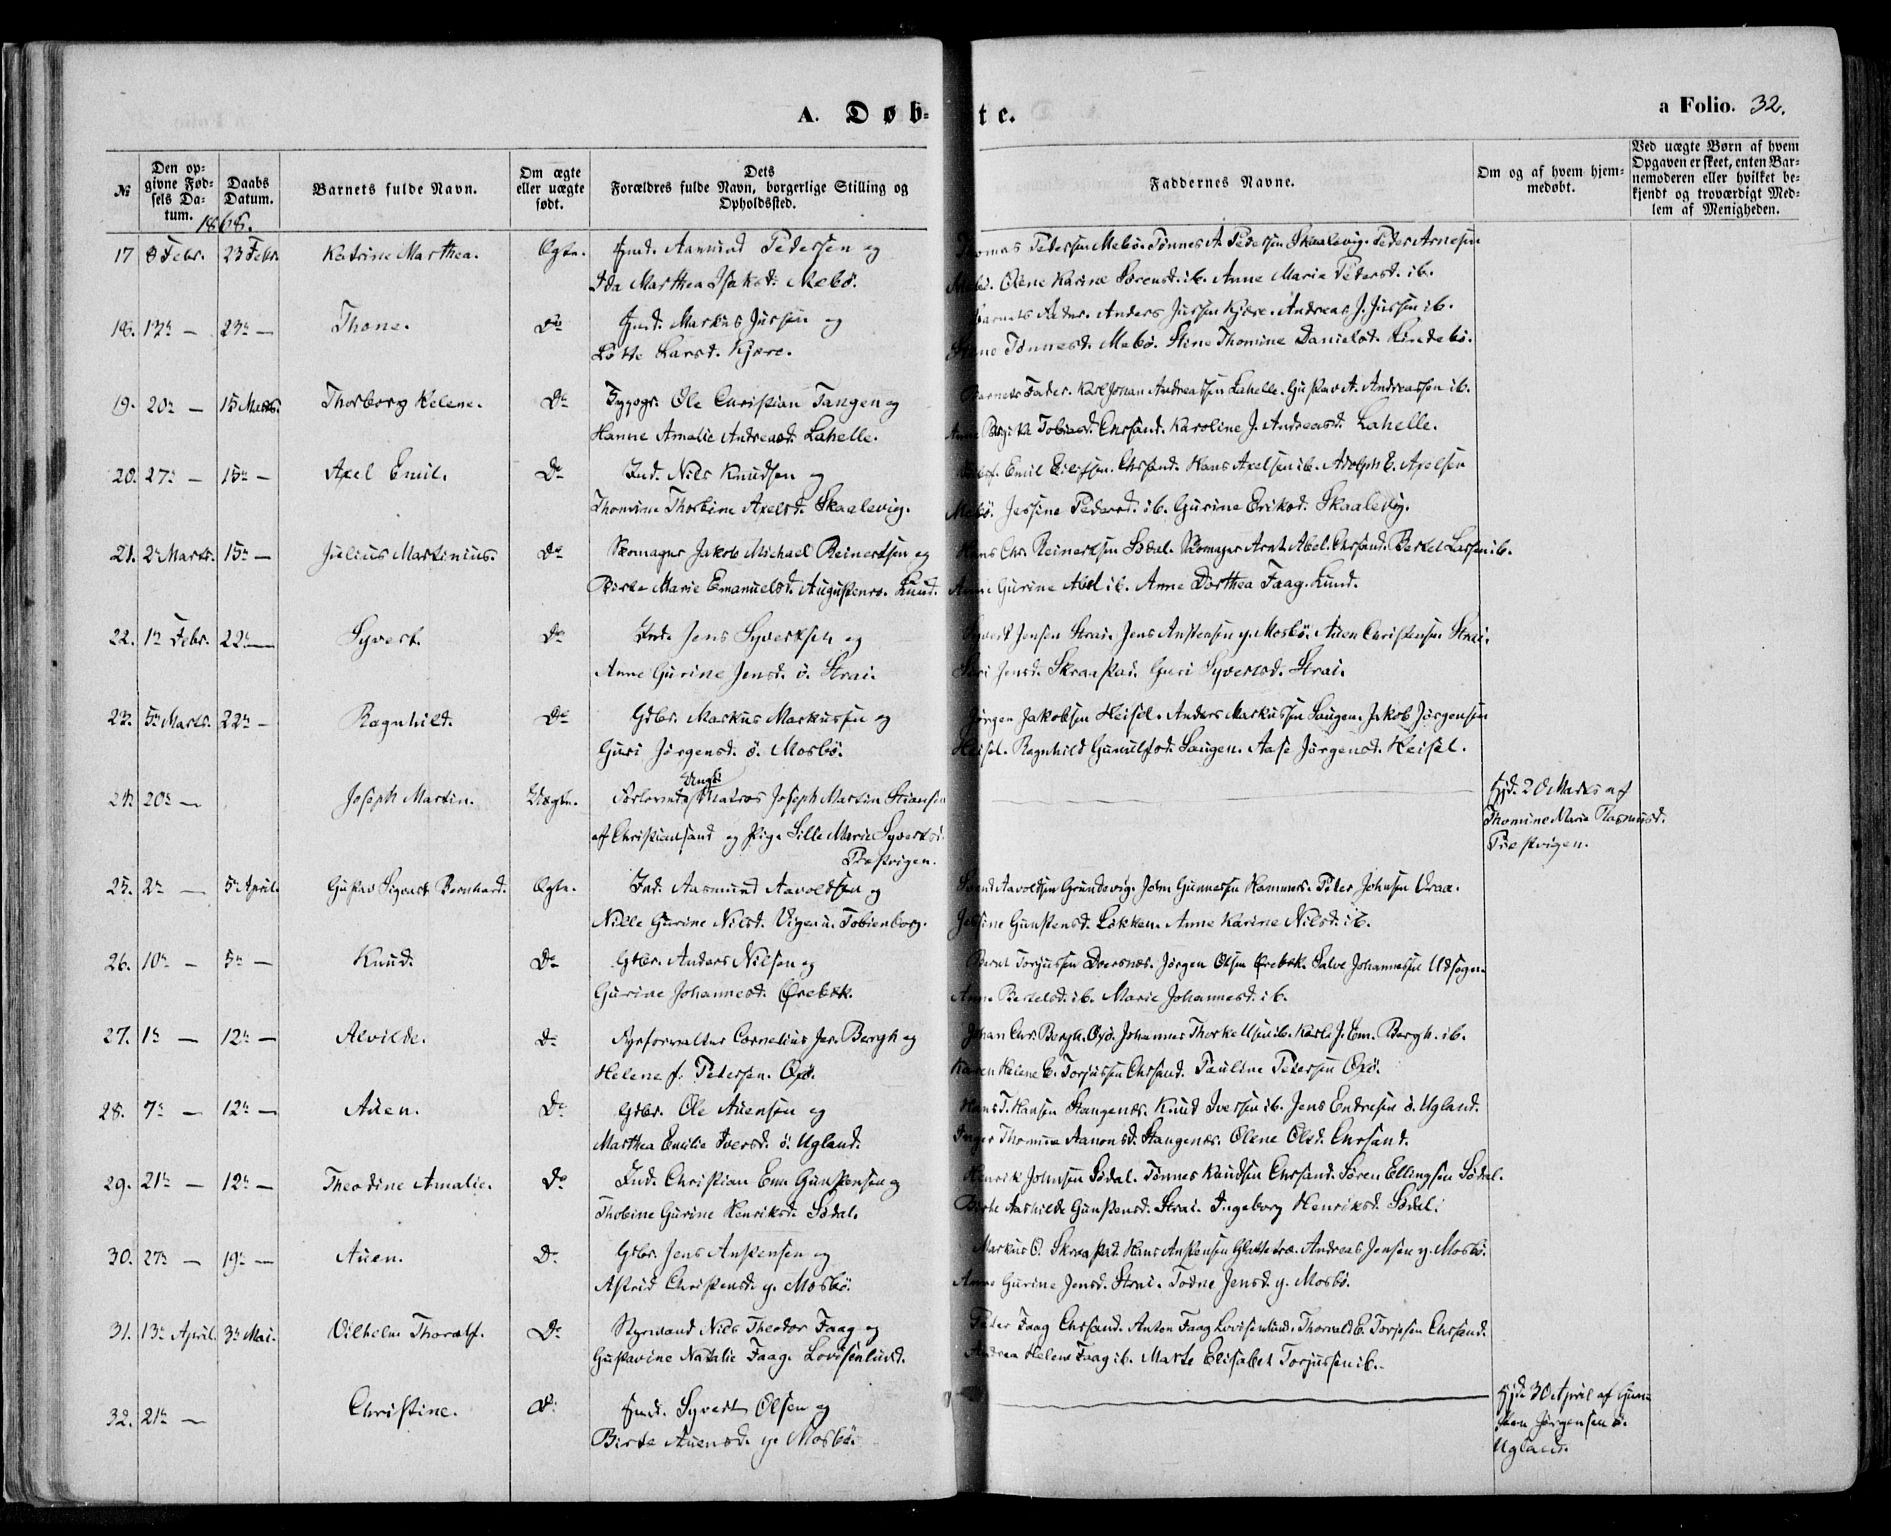 A. Døb-
te.
a Folio. 32.
№
Den op-
givne Fød-
sels Da-
tum.
Daabs
Datum.
Barnets fulde Navn.
Om ægte
eller uægte
født.
Dets
Forældres fulde Navn, borgerlige Stilling og
Opholdssted.
Faddernes Navne.
Om og af hvem hjem-
medøbt.
Ved uægte Børn af hvem
Opgaven er skeet, enten Bar-
nemoderen eller hvilket be-
kjendt og troværdigt Med-
lem af Menigheden.
1868.
17 8 Febr. 23 Febr. Katrine Marthea. Ægte. Aanund Pedersen og
Ida Marthea Isaksd. Mebö.
Thomas Pedersen Mebö. Tönnes A. Pedersen Skaalevig. Peder Arnesen
Mebö. Olene Karine Sörensd. ib. Anne Marie Pedersd. ib.
18. 13de — 23de — Thone. Do Markus Jussen og
Lotte Larsd. Kjære.
Barnets Fader. Anders Jussen Kjære. Andreas J. Jussen ib.
Tönnesd. Mebö. Stine Thomine Danielsd. Lindebö.
19. 20de — 15 Marts. Thorborg Helene. Do Ole Christian Tangen og
Hanne Amalie Andreasd. Lahelle.
Barnets Fader. Karl Johan Andreassen Lahelle. Gustav A. Andreassen ib.
Tobiasd. Chrsand. Karoline J. Andreasd. Lahelle.
20. 27de — 15de — Axel Emil. Do Ind. Nils Knudsen og
Thomine Thorbine Axelsd. Skaalevig.
Emil Eilefsen. Chrsand. Hans Axelsen ib. Adolph E. Axelsen
Mebö. Jessine Pedersd. ib. Gurine Eriksd. Skaalevig.
21. 2de Marts. 15de — Julius Martinius. Do Skomager Jakob Michael Reinertsen og
Birte Marie Emanuelsd. Augustens. Lund.
Hans Chr. Reinertsen Södal. Skomager Arnt Abel. Chrsand. Bertel Larsen ib.
Anne Gurine Abel ib. Anne Dorthea Faag. Lund.
22. 1de Febr. 22de — Syvert. Do Ind. Jens Syvertsen og
Anne Gurine Jensd. ö. Strai.
Syvert Jensen Strai. Jens Anstensen y. Mosbö. Auen Christensen Strai.
Siri Jensd. Skraastad. Guri Syversd. Strai.
23. 5de Marts. 22de — Ragnhild. Do Gdbr. Markus Markussen og
Guri Jörgensd. ö. Mosbö.
Jörgen Jakobsen Heisel. Anders Markussen Haugen. Jakob Jörgensen
Heisel. Ragnhild Gunulfsd. Haugen. Aase Jörgensd. Heisel.
24. 20de — Joseph Martin. Uægte. Forlovede Ungk. Matros Joseph Martin Stiansen
af Christiansand og Pige Sille Marie Syvertsd.
Præstvigen.
Hjd. 20 Marts af
Thomine Marie Rasmusd.
Præstvigen.
25. 2de — 5de April. Gustav Sigvart Bernhard. Ægte. Ind. Aasmund Aavoldsen og
Nille Gurine Nilsd. Vigen u. Tobienborg.
Svend Aavoldsen Grundevig. John Gunnersen Hammer. Peter Johnsen Vraa.
Jessine Gunstensd. Lökken. Anne Karine Nilsd. ib.
26. 10de — 5de — Knud. Do Gdbr. Anders Nilsen og
Gurine Johannesd. Ørebæk.
Bernt Torjussen Dversnæs. Jörgen Olsen Ørebæk. Salve Johannessen Udsogn.
Anne Bertelsd. ib. Marie Johannesd. ib.
27. 1de — 12de — Alvilde. Do Fyrforvalter Cornelius Jer. Bergh og
Helene f. Petersen. Oxö.
Johan Chr. Bergh. Oxö. Johannes Thorkelsen ib. Karl J. Em. Bergh. ib.
Karen Helene C. Torjussen Chrsand. Pauline Petersen Oxö.
28. 7de — 12de — Auen. Do Gdbr. Ole Auensen og
Marthea Emilie Iversd. ö. Ugland.
Hans T. Hansen Stangenæs. Knud Iversen ib. Jens Endresen ö. Ugland.
Inger Thomine Aanonsd. Stangenæs. Olene Olsd. Chrsand.
29. 21de — 12de — Theodine Amalie. Do Ind. Christian Em. Gunstensen og
Thobine Gurine Henriksd. Södal.
Henrik Johnsen Södal. Tönnes Knudsen Chrsand. Sören Ellingsen Södal.
Birte Aashilde Gunstensd. Strai. Ingeborg Henriksd. Södal.
30. 27de — 19de — Auen. Do Gdbr. Jens Anstensen og
Astrid Christensd. y. Mosbö.
Markus O. Skraastad. Hans Anstensen Glattetræ. Andreas Jensen y. Mosbö.
Anne Gurine Jensd. Strai. Todne Jensd. y. Mosbö.
31. 13de April. 3de Mai. Vilhelm Thoralf. Do Styrmand Nils Theodor Faag og
Gustavine Natalie Faag. Lovisenlund.
Peder Faag Chrsand. Anton Faag Lovisenlund. Thorvald E. Torjusen Chrsand.
Andrea Helene Faag ib. Marte Elisabet Torjussen ib.
32. 21de — Christine. Do Syvert Olsen og
Birte Auensd. y. Mosbö.
Hjd. 30 April af Gun-
sten Jörgensen ö.
Ugland.